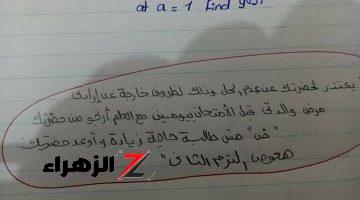 at a = 1 find
بعتذر لحضرتك عن عدم الحل وذلك لظروف خارجة عن إرادتى
مرض والدتى قبل الأمتحان بيومين مع العلم أرجو من حضرتك
مش طالبة حاجة زيادة وأوعد حضرتك
هعوض الترم الثانى"
الزهراء